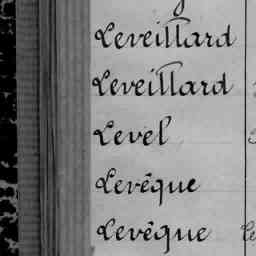 Leveillard
Leveillard
Level
Levêque
Levêque